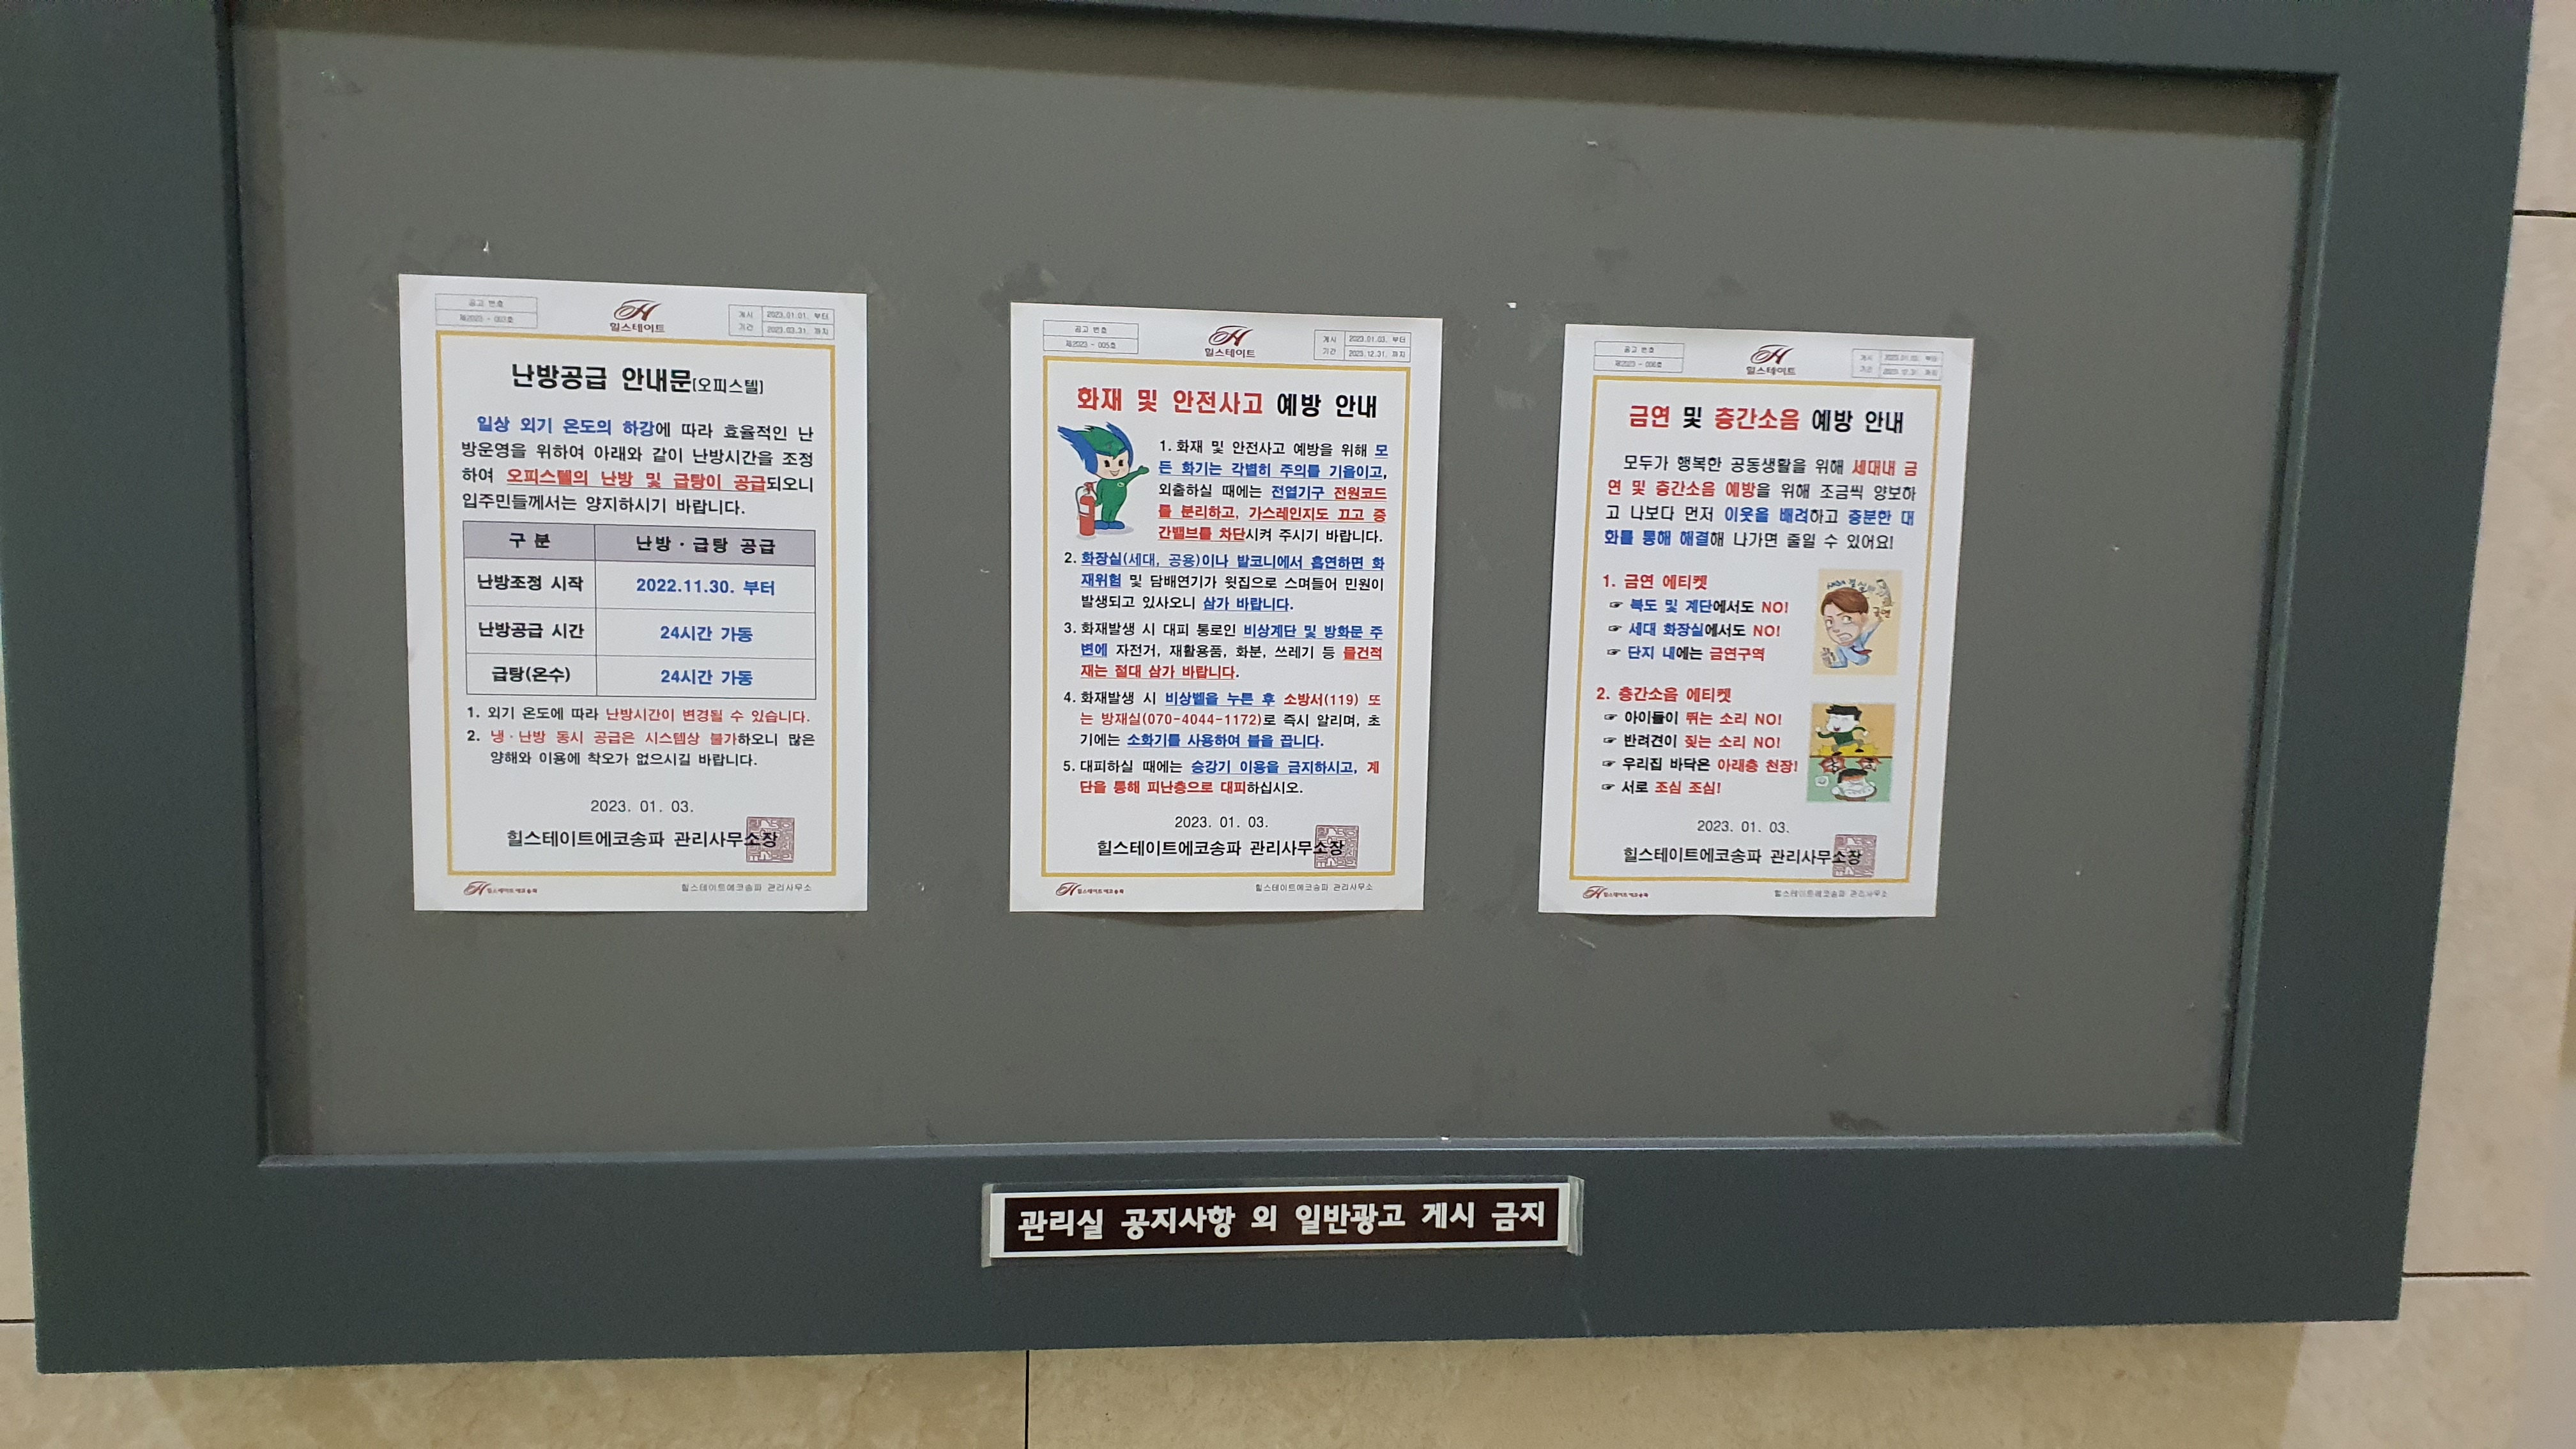 공고 번호
제2023 - 007호
힐스테이트
게시 기간
2023.01.01. 부터
2023.03.31. 까지
난방공급 안내문[오피스텔]
일상 외기 온도의 하강에 따라 효율적인 난
방운영을 위하여 아래와 같이 난방시간을 조정
하여 오피스텔의 난방 및 급탕이 공급되오니
입주민들께서는 양지하시기 바랍니다.
구 분 난방 · 급탕 공급
난방조정 시작 2022.11.30. 부터
난방공급 시간 24시간 가동
급탕(온수) 24시간 가동
1. 외기 온도에 따라 난방시간이 변경될 수 있습니다.
2. 냉 · 난방 동시 공급은 시스템상 불가하오니 많은
양해와 이용에 착오가 없으시길 바랍니다.
2023. 01. 03.
힐스테이트에코송파 관리사무소장
힐스테이트 에코송파
힐스테이트에코송파 관리사무소
공고 번호
제2023 - 005호
힐스테이트
게시 기간
2023.01.03. 부터
2023.12.31. 까지
화재 및 안전사고 예방 안내
1. 화재 및 안전사고 예방을 위해 모
든 화기는 각별히 주의를 기울이고,
외출하실 때에는 전열기구 전원코드
를 분리하고, 가스레인지도 끄고 중
간밸브를 차단시켜 주시기 바랍니다.
2. 화장실(세대, 공용)이나 발코니에서 흡연하면 화
재위험 및 담배연기가 윗집으로 스며들어 민원이
발생되고 있사오니 삼가 바랍니다.
3. 화재발생 시 대피 통로인 비상계단 및 방화문 주
변에 자전거, 재활용품, 화분, 쓰레기 등 물건적
재는 절대 삼가 바랍니다.
4. 화재발생 시 비상벨을 누른 후 소방서(119) 또
는 방재실(070-4044-1172)로 즉시 알리며, 초
기에는 소화기를 사용하여 불을 끕니다.
5. 대피하실 때에는 승강기 이용을 금지하시고, 계
단을 통해 피난층으로 대피하십시오.
2023. 01. 03.
힐스테이트에코송파 관리사무소장
힐스테이트 에코송파
힐스테이트에코송파 관리사무소
공고 번호
제2023 - 006호
힐스테이트
게시 기간
2023.01.03. 부터
2023.12.31. 까지
금연 및 층간소음 예방 안내
모두가 행복한 공동생활을 위해 세대내 금
연 및 층간소음 예방을 위해 조금씩 양보하
고 나보다 먼저 이웃을 배려하고 충분한 대
화를 통해 해결해 나가면 줄일 수 있어요!
1. 금연 에티켓
☞ 복도 및 계단에서도 NO!
☞ 세대 화장실에서도 NO!
☞ 단지 내에는 금연구역
금연
2. 층간소음 에티켓
☞ 아이들이 뛰는 소리 NO!
☞ 반려견이 짖는 소리 NO!
☞ 우리집 바닥은 아래층 천장!
☞ 서로 조심 조심!
2023. 01. 03.
힐스테이트에코송파 관리사무소장
힐스테이트 에코송파
힐스테이트에코송파 관리사무소
관리실 공지사항 외 일반광고 게시 금지